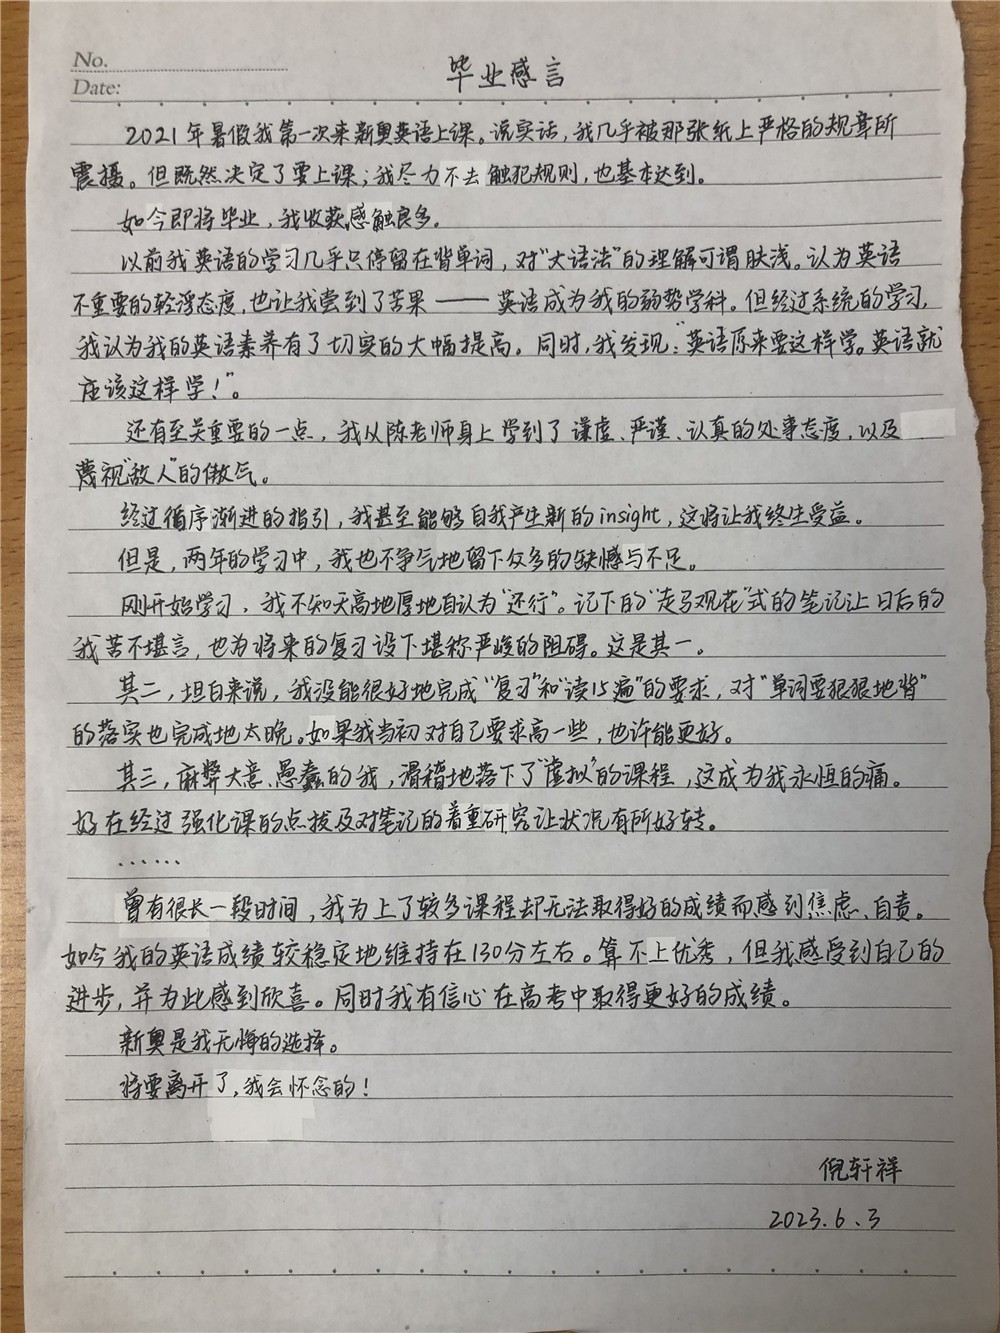 No.
Date:
毕业感言
2021年暑假我第一次来新奥英语上课。说实话，我几乎被那张纸上严格的规章所
震撼。但既然决定了要上课；我尽力不去触犯规则，也基本达到。
如今即将毕业，我收获感触良多。
以前我英语的学习几乎只停留在背单词，对“大语法”的理解可谓肤浅。认为英语
不重要的轻浮态度，也让我尝到了苦果——英语成为我的弱势学科。但经过系统的学习，
我认为我的英语素养有了切实的大幅提高。同时，我发现：“英语原来要这样学。英语就
应该这样学！”。
还有至关重要的一点，我从陈老师身上学到了谦虚、严谨、认真的处事态度，以及
蔑视“敌人”的傲气。
经过循序渐进的指引，我甚至能够自我产生新的insight，这将让我终生受益。
但是，两年的学习中，我也不争气地留下众多的缺憾与不足。
刚开始学习，我不知天高地厚地自认为“还行”。记下的“走马观花”式的笔记让日后的
我苦不堪言，也为将来的复习设下堪称严峻的阻碍。这是其一。
其二，坦白来说，我没能很好地完成“复习”和“读15遍”的要求，对“单词要狠狠地背”
的落实也完成地太晚。如果我当初对自己要求高一些，也许能更好。
其三，麻弊大意、愚蠢的我，滑稽地落下了“虚拟”的课程，这成为我永恒的痛。
好在经过强化课的点拨及对笔记的着重研究让状况有所好转。
······
曾有很长一段时间，我为上了较多课程却无法取得好的成绩而感到焦虑、自责。
如今我的英语成绩较稳定地维持在130分左右。算不上优秀，但我感受到自己的
进步，并为此感到欣喜。同时我有信心在高考中取得更好的成绩。
新奥是我无悔的选择。
将要离开了，我会怀念的！
倪轩祥
2023.6.3